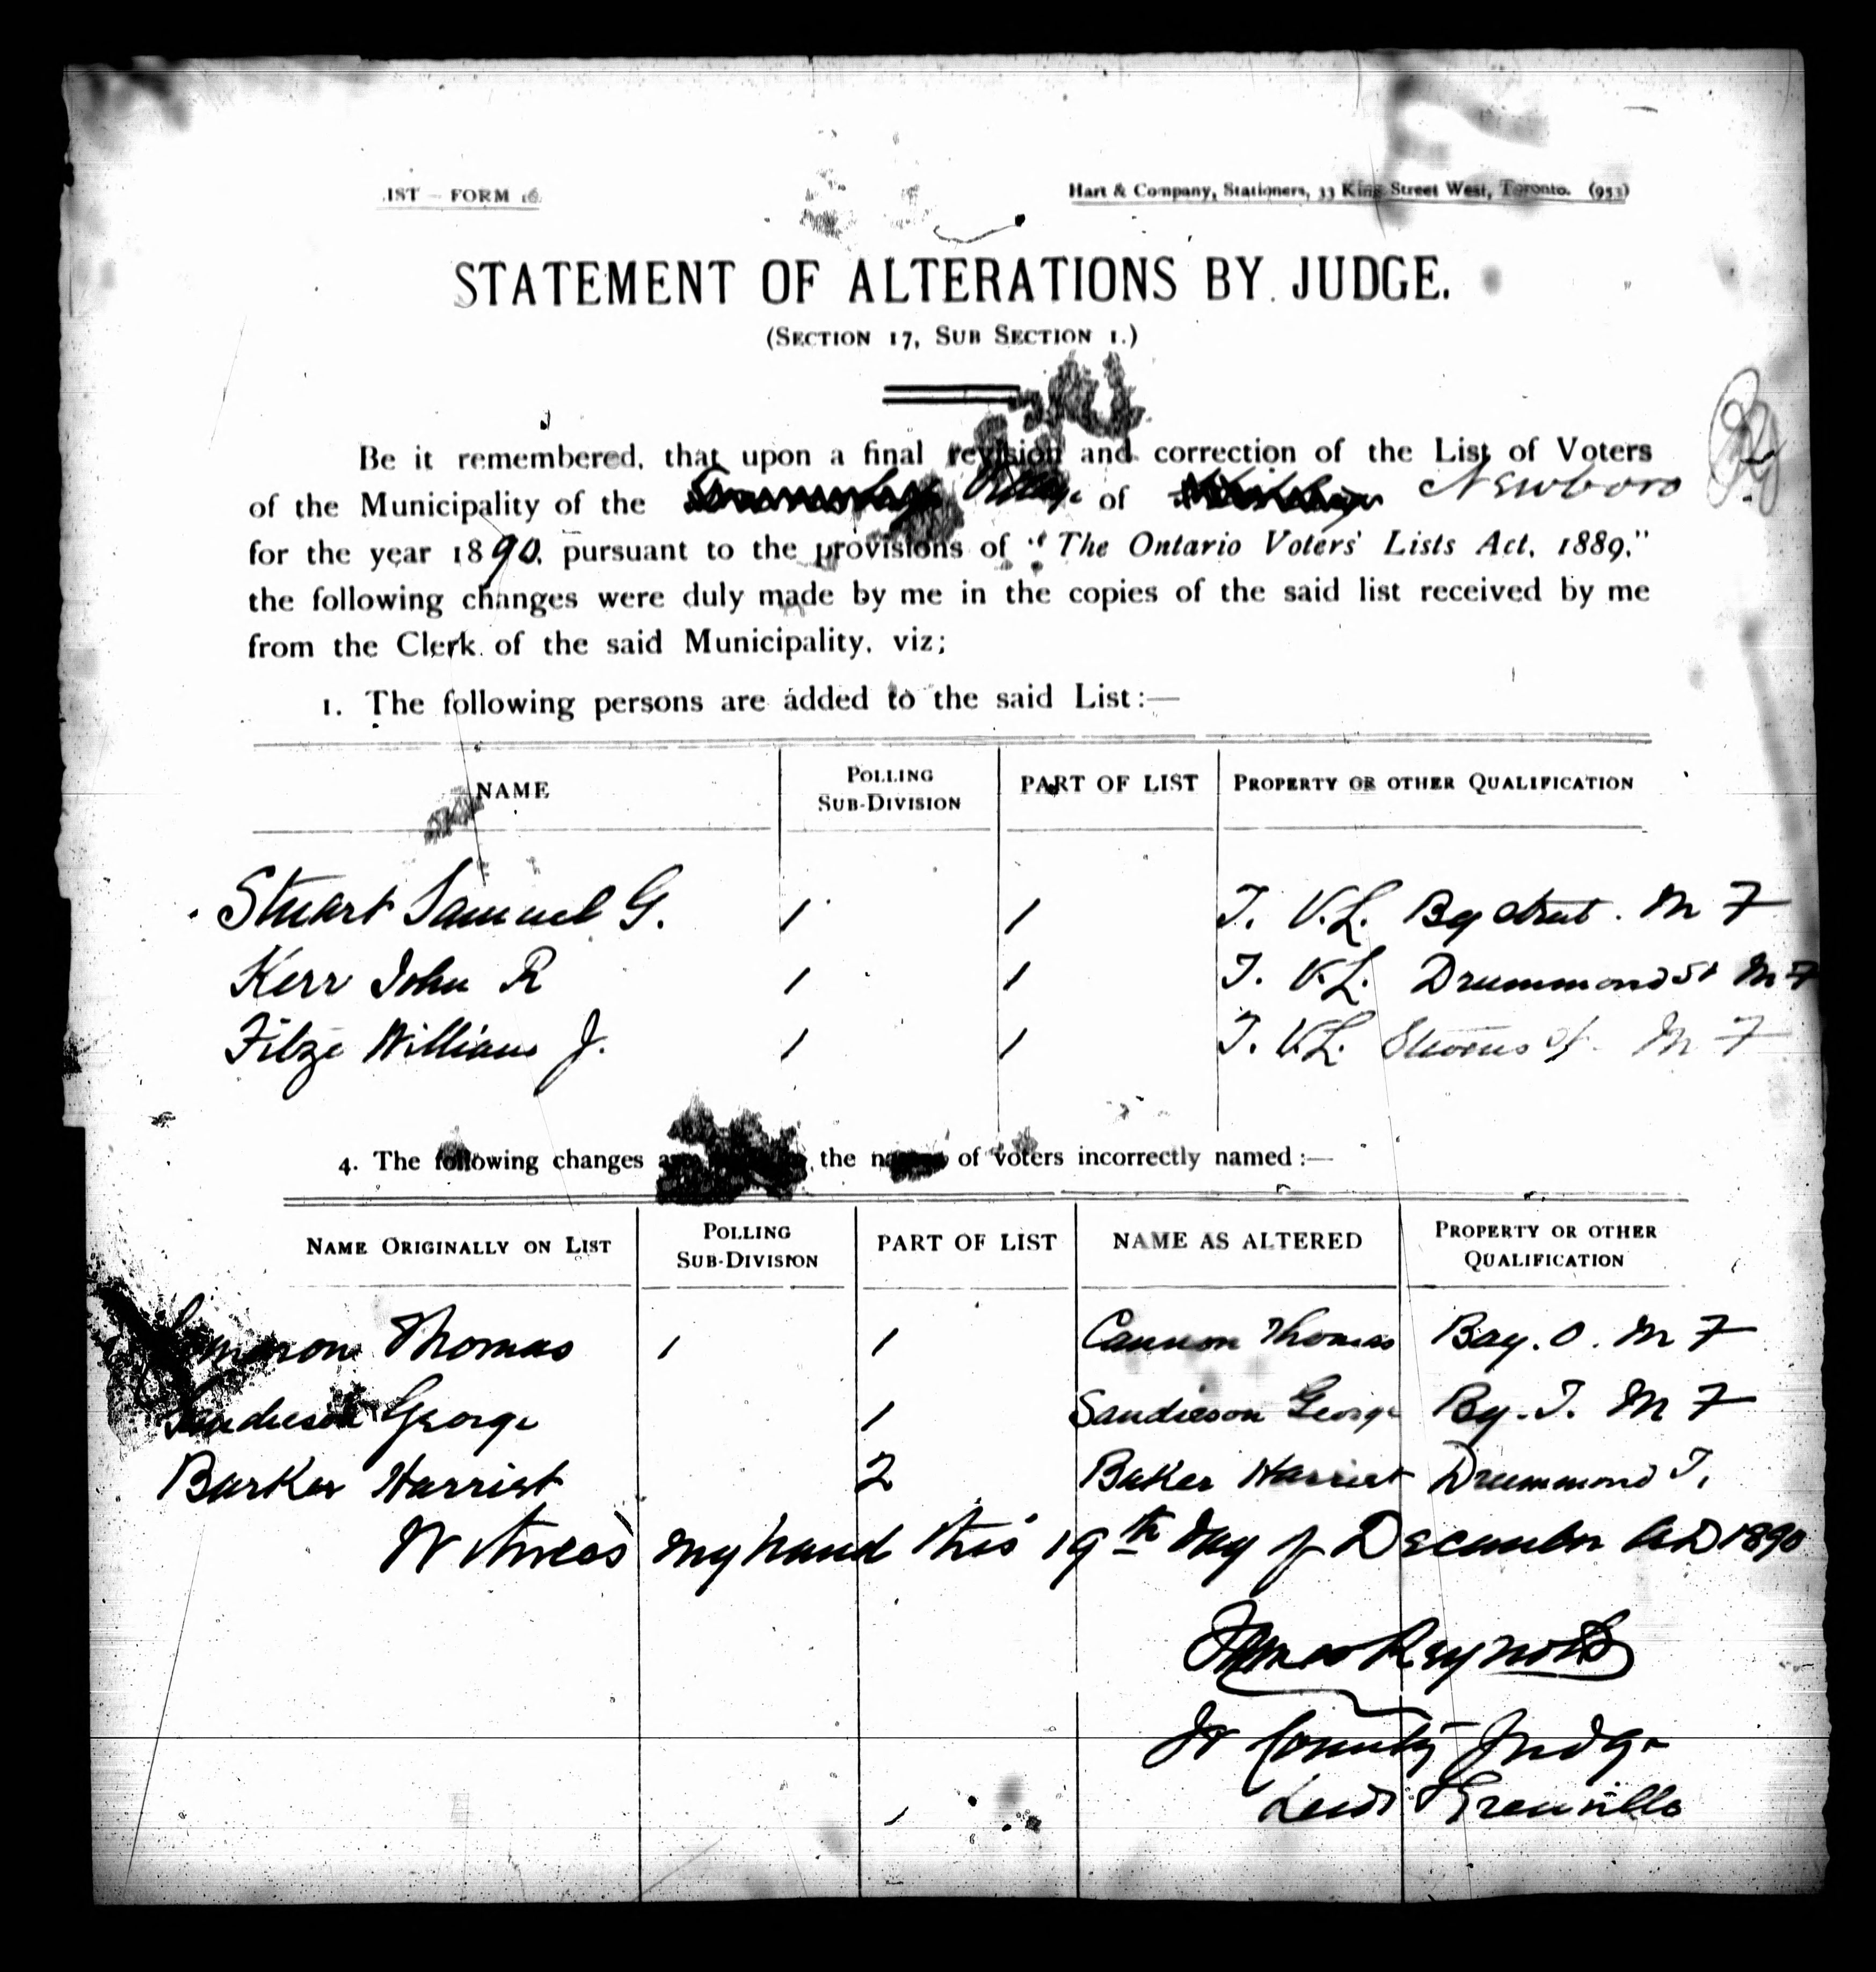 IST — FORM 16.
Hart & Company, Stationers, 33 King Street West, Toronto. (953)
STATEMENT OF ALTERATIONS BY JUDGE.
(SECTION 17, SUB SECTION 1.)
Be it remembered, that upon a final revision and correction of the List of Voters
of the Municipality of the Village of Newboro
for the year 1890, pursuant to the provisions of "The Ontario Voters' Lists Act, 1889,"
the following changes were duly made by me in the copies of the said list received by me
from the Clerk of the said Municipality, viz;
1. The following persons are added to the said List:—
NAME POLLING SUB-DIVISION PART OF LIST PROPERTY OR OTHER QUALIFICATION
Stuart Samuel G. 1 1 T. V.L. By Street. M F
Kerr John R 1 1 T. V.L. Drummond St M F
Filze William J. 1 1 T. V.L. Stevens St M F
4. The following changes the of voters incorrectly named:—
NAME ORIGINALLY ON LIST POLLING SUB-DIVISION PART OF LIST NAME AS ALTERED PROPERTY OR OTHER QUALIFICATION
Thomas 1 1 Cannon Thomas Bay. O. M F
George 1 Sandieson George By. T. M F
Barker Harriet 2 Baker Harriet Drummond T.
Witness my hand this 19th day of December AD 1890
James Reynolds
Jr County Judge
Leeds & Grenville